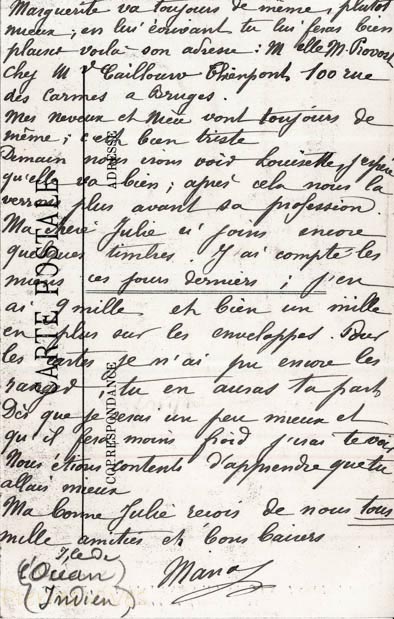 Marguerite va toujours de même, plutôt
mieux; en lui écrivant tu lui feras bien
plaisir voilà son adresse: Melle M. Provost
Chez Mr Taillouw Thienpont, 100 rue
des Carmes a Bruges.
Mes neveux et Nièce vont toujours de
même; c'est bien triste
Demain nous irons voir Louisette, j'espère
qu'elle va bien; après cela nous la
verrons plus avant sa profession.
Ma chère Julie ci joins encore
quelques timbres. J'ai compté les
miens ces jours derniers; j'en
ai 9 mille et bien un mille
en plus sur les enveloppes. Pour
les cartes je n'ai pu encore les
ranger tu en auras ta part
Dès que je serai un peu mieux et
qu'il fera moins froid j'irai te voir
Nous étions contents d'apprendre que tu
allais mieux
Ma bonne Julie reçois de nous tous
mille amitiés et bons baisers
Maria
Ile de
(l'Océan)
(Indien)
CARTE POSTALE
CORRESPONDANCE
ADRESSE